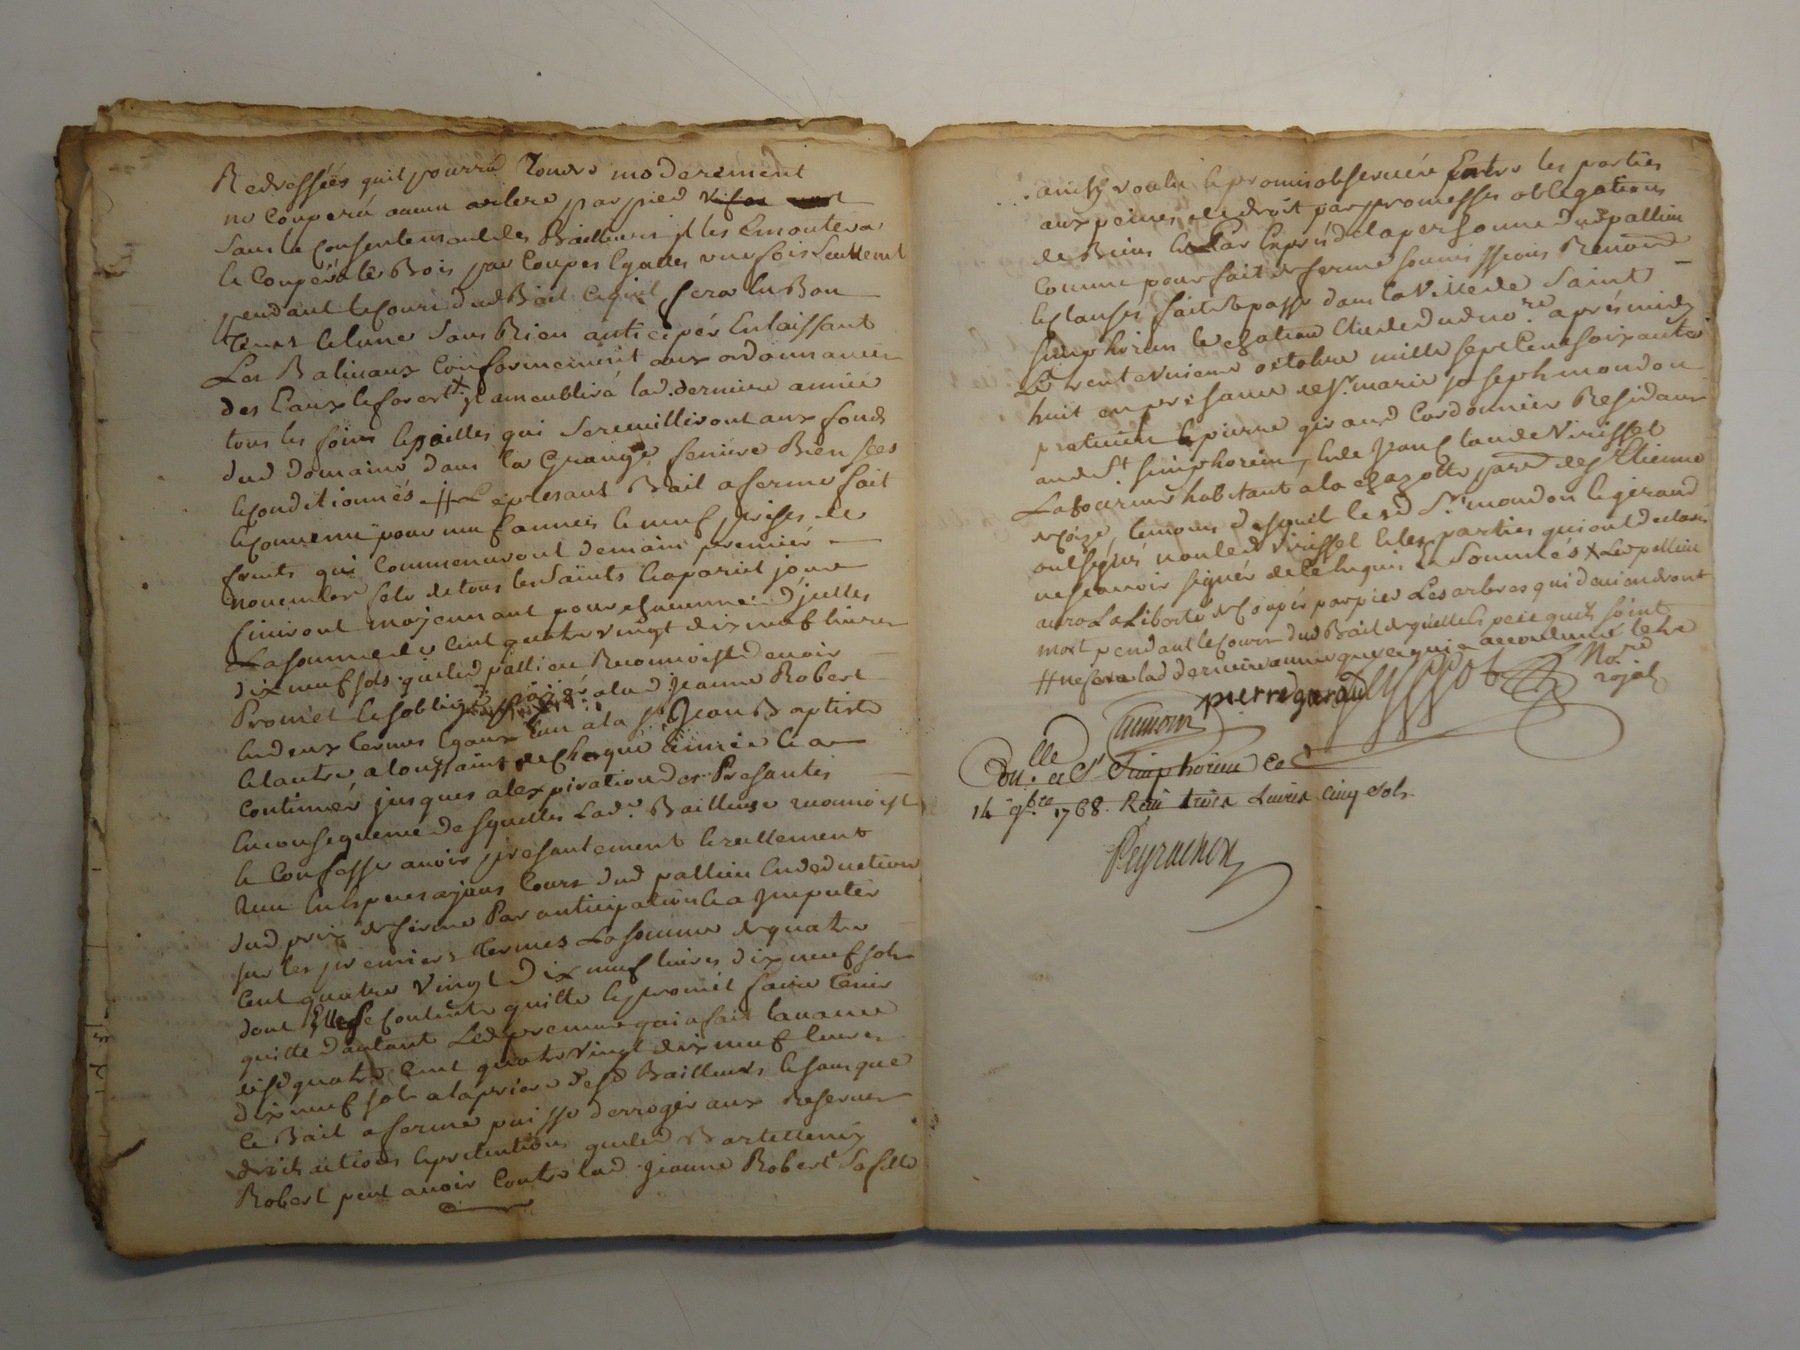 Redressées quil pourra Tondre moderement
ne Couperá aucun arbre par pied vif ou mort
sans le Consentement des Bailleurs jl les Emontera
et Couperá les Bois par Coupes Egalles une fois seullement
pendant le Cours dud Bail Ce quil fera En Bon
tems et lune sans Rien anticipér En laissant
Les Balivaux Conformement aux ordonnances
des Eaux et forest jl ameublirá lad. derniere année
tous les foins et pailles qui se recuilliront aux fonds
dud domaine dans la Grange feniere Bien secs
et Conditionnés # Le present Bail a ferme fait
et Convenu pour neuf années et neuf prises de
fruits qui Commenceront demain premier
novembre fete de tous les Saints et a pariel jour
finiront moyennant pour chacunne d'jcelles
La somme de Cent quatre vingt dix neuf livres
dix neuf sols que led pallien Reconnoist devoir
Promet et soblige payer a lad Jeanne Robert
En deux termes Egaux Lun a la St Jean Baptiste
et lautre a toussaint de Chaque Année et a
Continuér jusques a lexpiration des Presantes
En consequence desquelles Lad. Bailleuse reconnoist
et Confesse avoir presantement et reellement
Reçu En Especes ajant Cours dud pallien En deduction
dud prix de ferme Par anticipation et a Jmputér
sur les premiers termes La somme de quatre
Cent quatre vingt dix neuf livres dix neuf sols
dont Elle se Contente quitte et promet faire tenir
quitte dautant Led preneur qui a fait lavance
desd quatre Cent quatre vingt dix neuf livres
dix neuf sols a la priere desd Bailleurs et sans que
le Bail a ferme puisse derroger aux Reserves
droits actions et pretentions que led Bartellemy
Robert peut avoir Contre lad Jeanne Robert sa fille
ainsy voulu et promis observér Entre les parties
aux peines de droit par promesses obligations
de Biens et Par Exprés de la personne dud pallien
Comme pour fait de ferme soumissions Renon
et Clauses fait et passé dans la Ville de Saint
simphorien le chateau Etude dud no.re aprés midy
Le trente unieme octobre mille sept Cent soixante
huit en presance de Sr. marie joseph mondon
praticien et pierre giraud Cordonnier Residans
aud St simphorien, et de Jean Claude Virissel
Laboureur habitant a la chazotte par.se de St Etienne
temoins desquels lesd Sr. mondon et giraud
ont signés non led Virissel et les parties qui ont declaré
ne scavoir signér de ce Enquis et Sommés X Led pallien
aura La Liberté de Coupér par pied Les arbres qui deviendront
mort pendant le Cours dud Bail de quelle Espece quils soint
# ne fera lad derniere année que ce qui a accoutumé letre
pierre giraud No.re
royal
Con.lle a St Simphorien Ce
14 9bre 1768. Reçu trois Livres Cinq sols.
Peyrachon